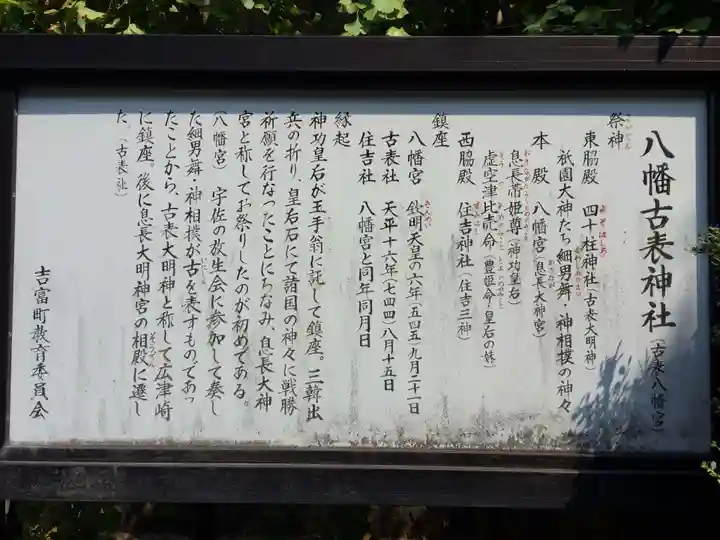 八幡古表神社(古表八幡宮)
祭神
東脇殿 四十柱神社(古表大明神)
祇園大神たち細男舞・神相撲の神々
本殿 八幡宮(息長大神宮)
息長帯姫尊(神功皇后)
虚空津比売命(豊姫命・皇后の妹)
西脇殿 住吉神社(住吉三神)
鎮座
八幡宮 欽明天皇の六年(五四五)九月二十一日
古表社 天平十六年(七四四)八月十五日
住吉社 八幡宮と同年同月日
縁起
神功皇后が玉手翁に託して鎮座。三韓出
兵の折り、皇后石にて諸国の神々に戦勝
祈願を行なったことにちなみ、息長大神
宮と称してお祭りしたのが初めである。
(八幡宮) 宇佐の放生会に参加して奏し
た細男舞・神相撲が古を表すものであっ
たことから、古表大明神と称して広津崎
に鎮座。後に息長大明神宮の相殿に遷し
た。(古表社)
吉富町教育委員会